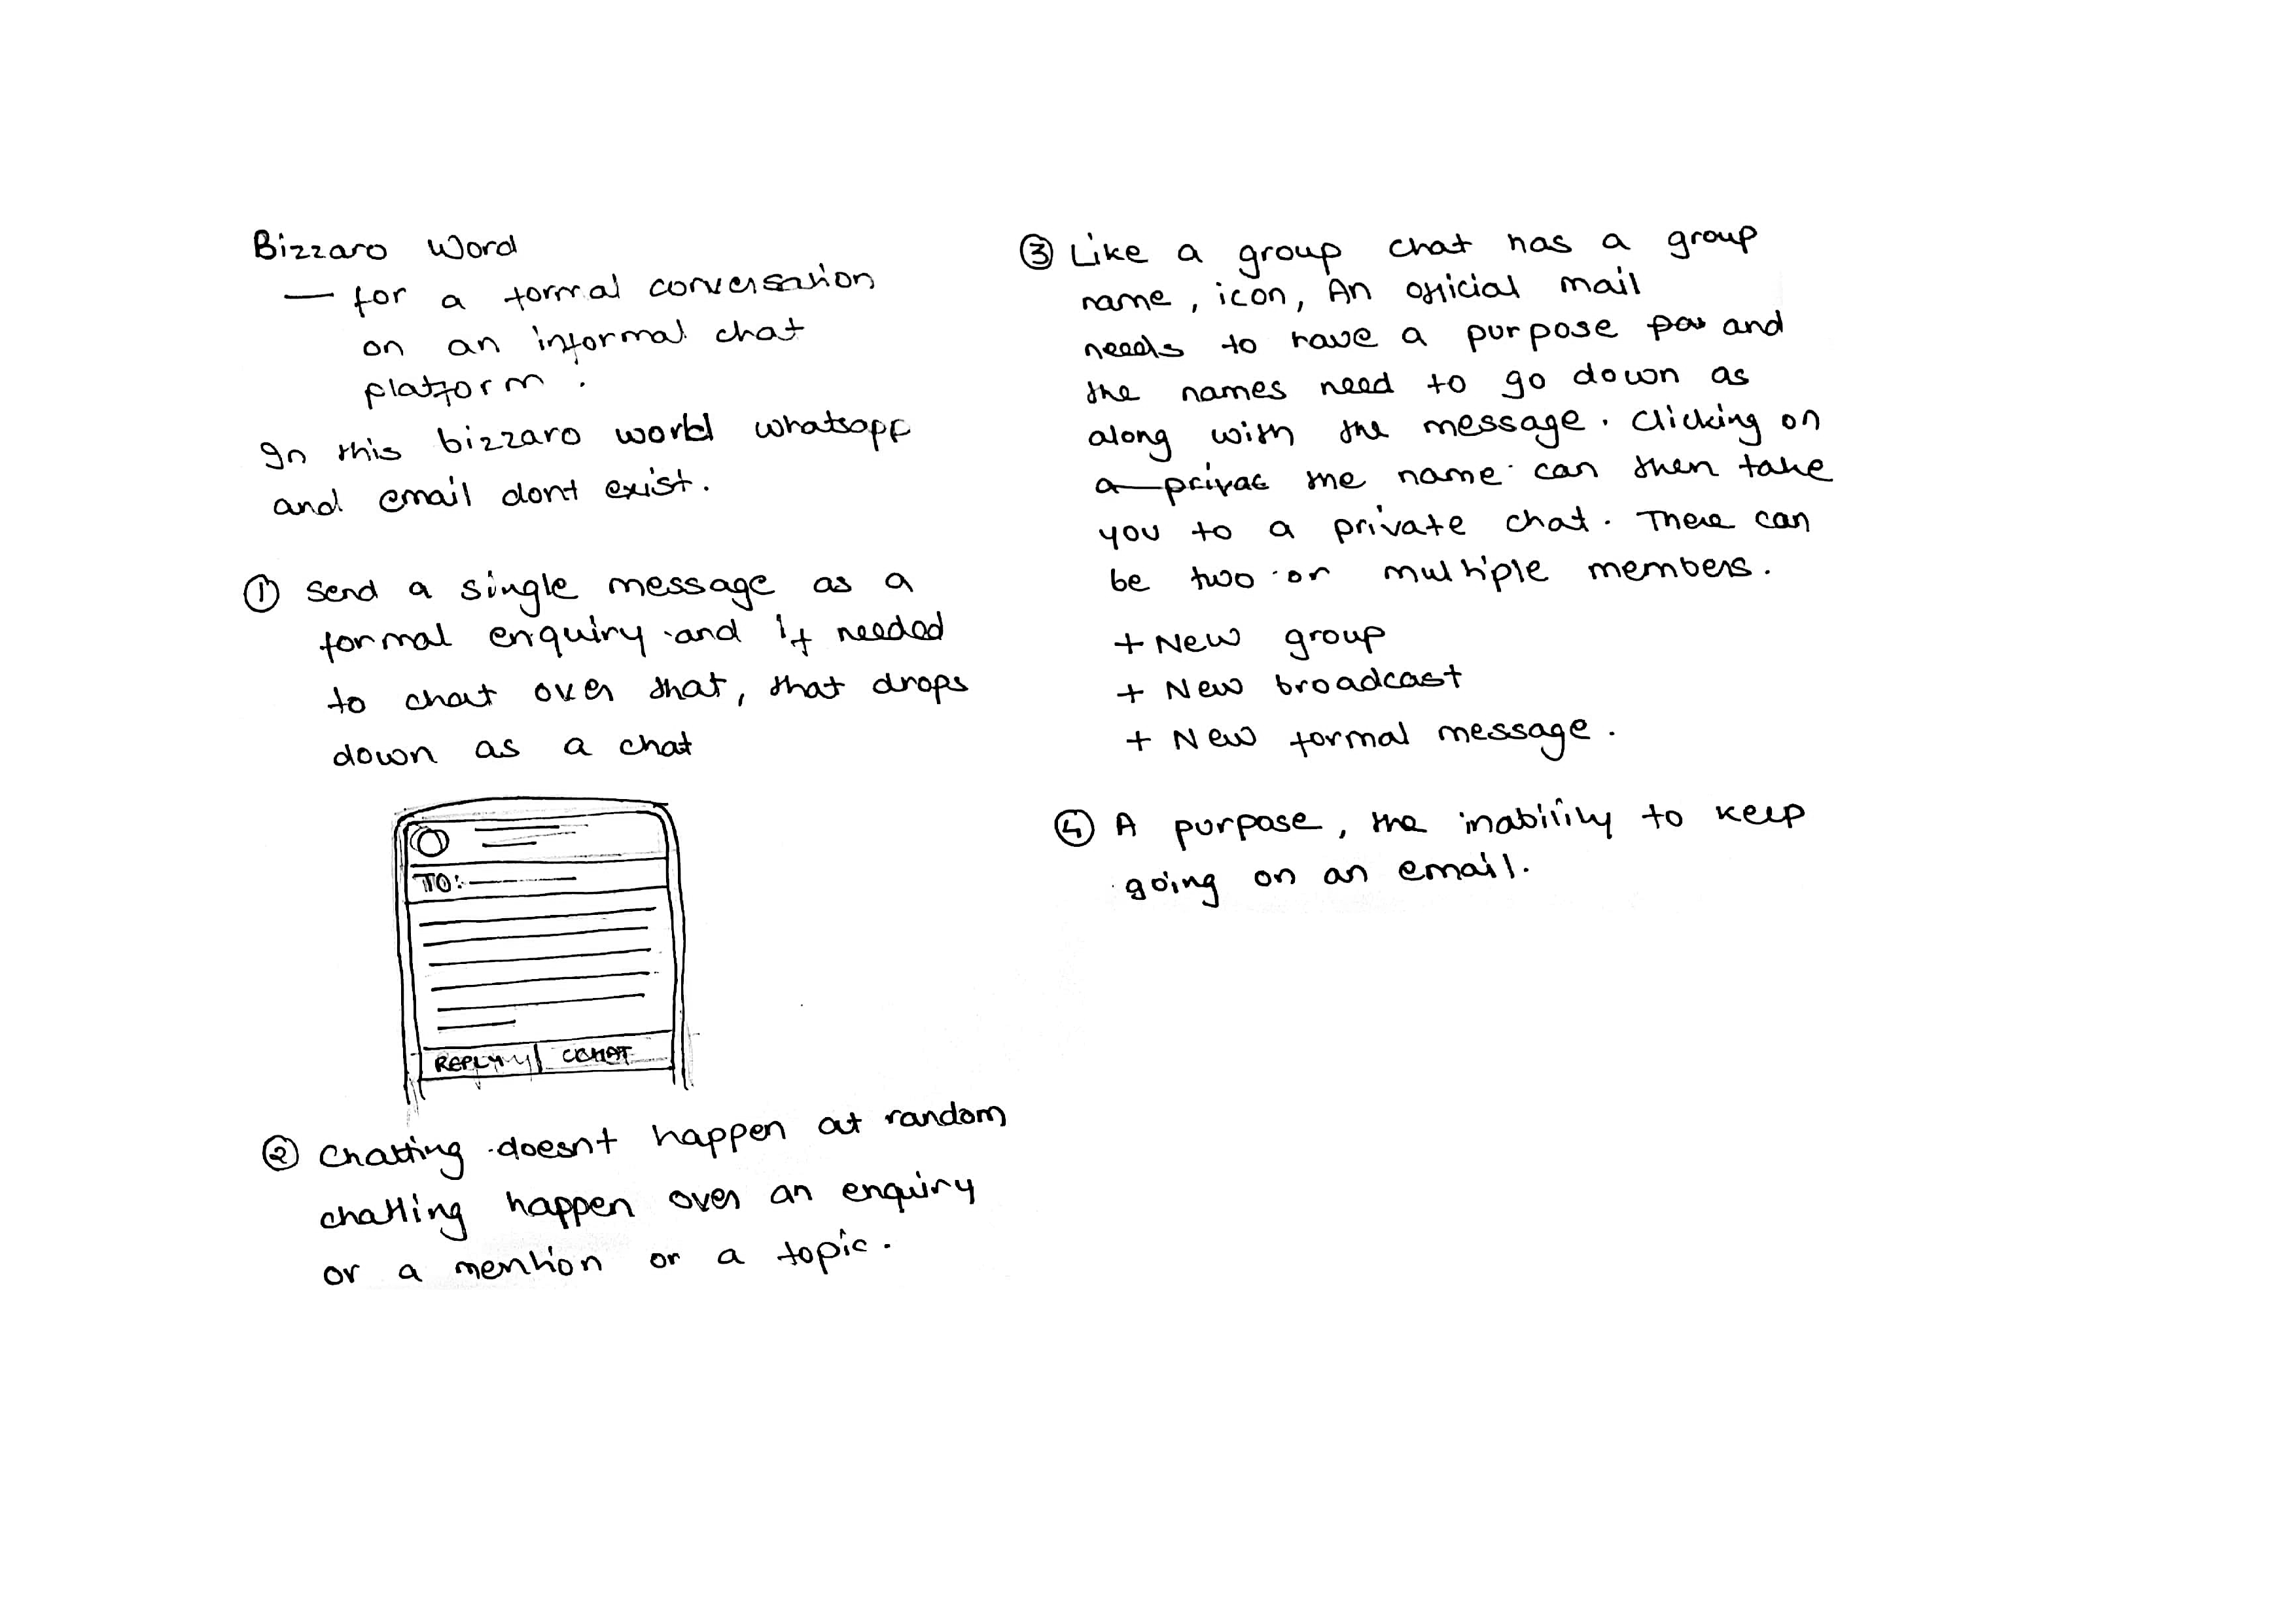 Bizzaro Word
— for a formal conversation
on an informal chat
platform.
In this bizzaro world whatsapp
and email dont exist.
① Send a single message as a
formal enquiry and if needed
to chat over that, that drops
down as a chat
TO:
REPLY CHAT
② Chatting doesnt happen at random
chatting happen over an enquiry
or a mention or a topic.
③ Like a group chat has a group
name, icon, An official mail
needs to have a purpose and
the names need to go down as
along with the message. Clicking on
a privae the name can then take
you to a private chat. There can
be two or multiple members.
+ New group
+ New broadcast
+ New formal message.
④ A purpose, the inability to keep
going on an email.